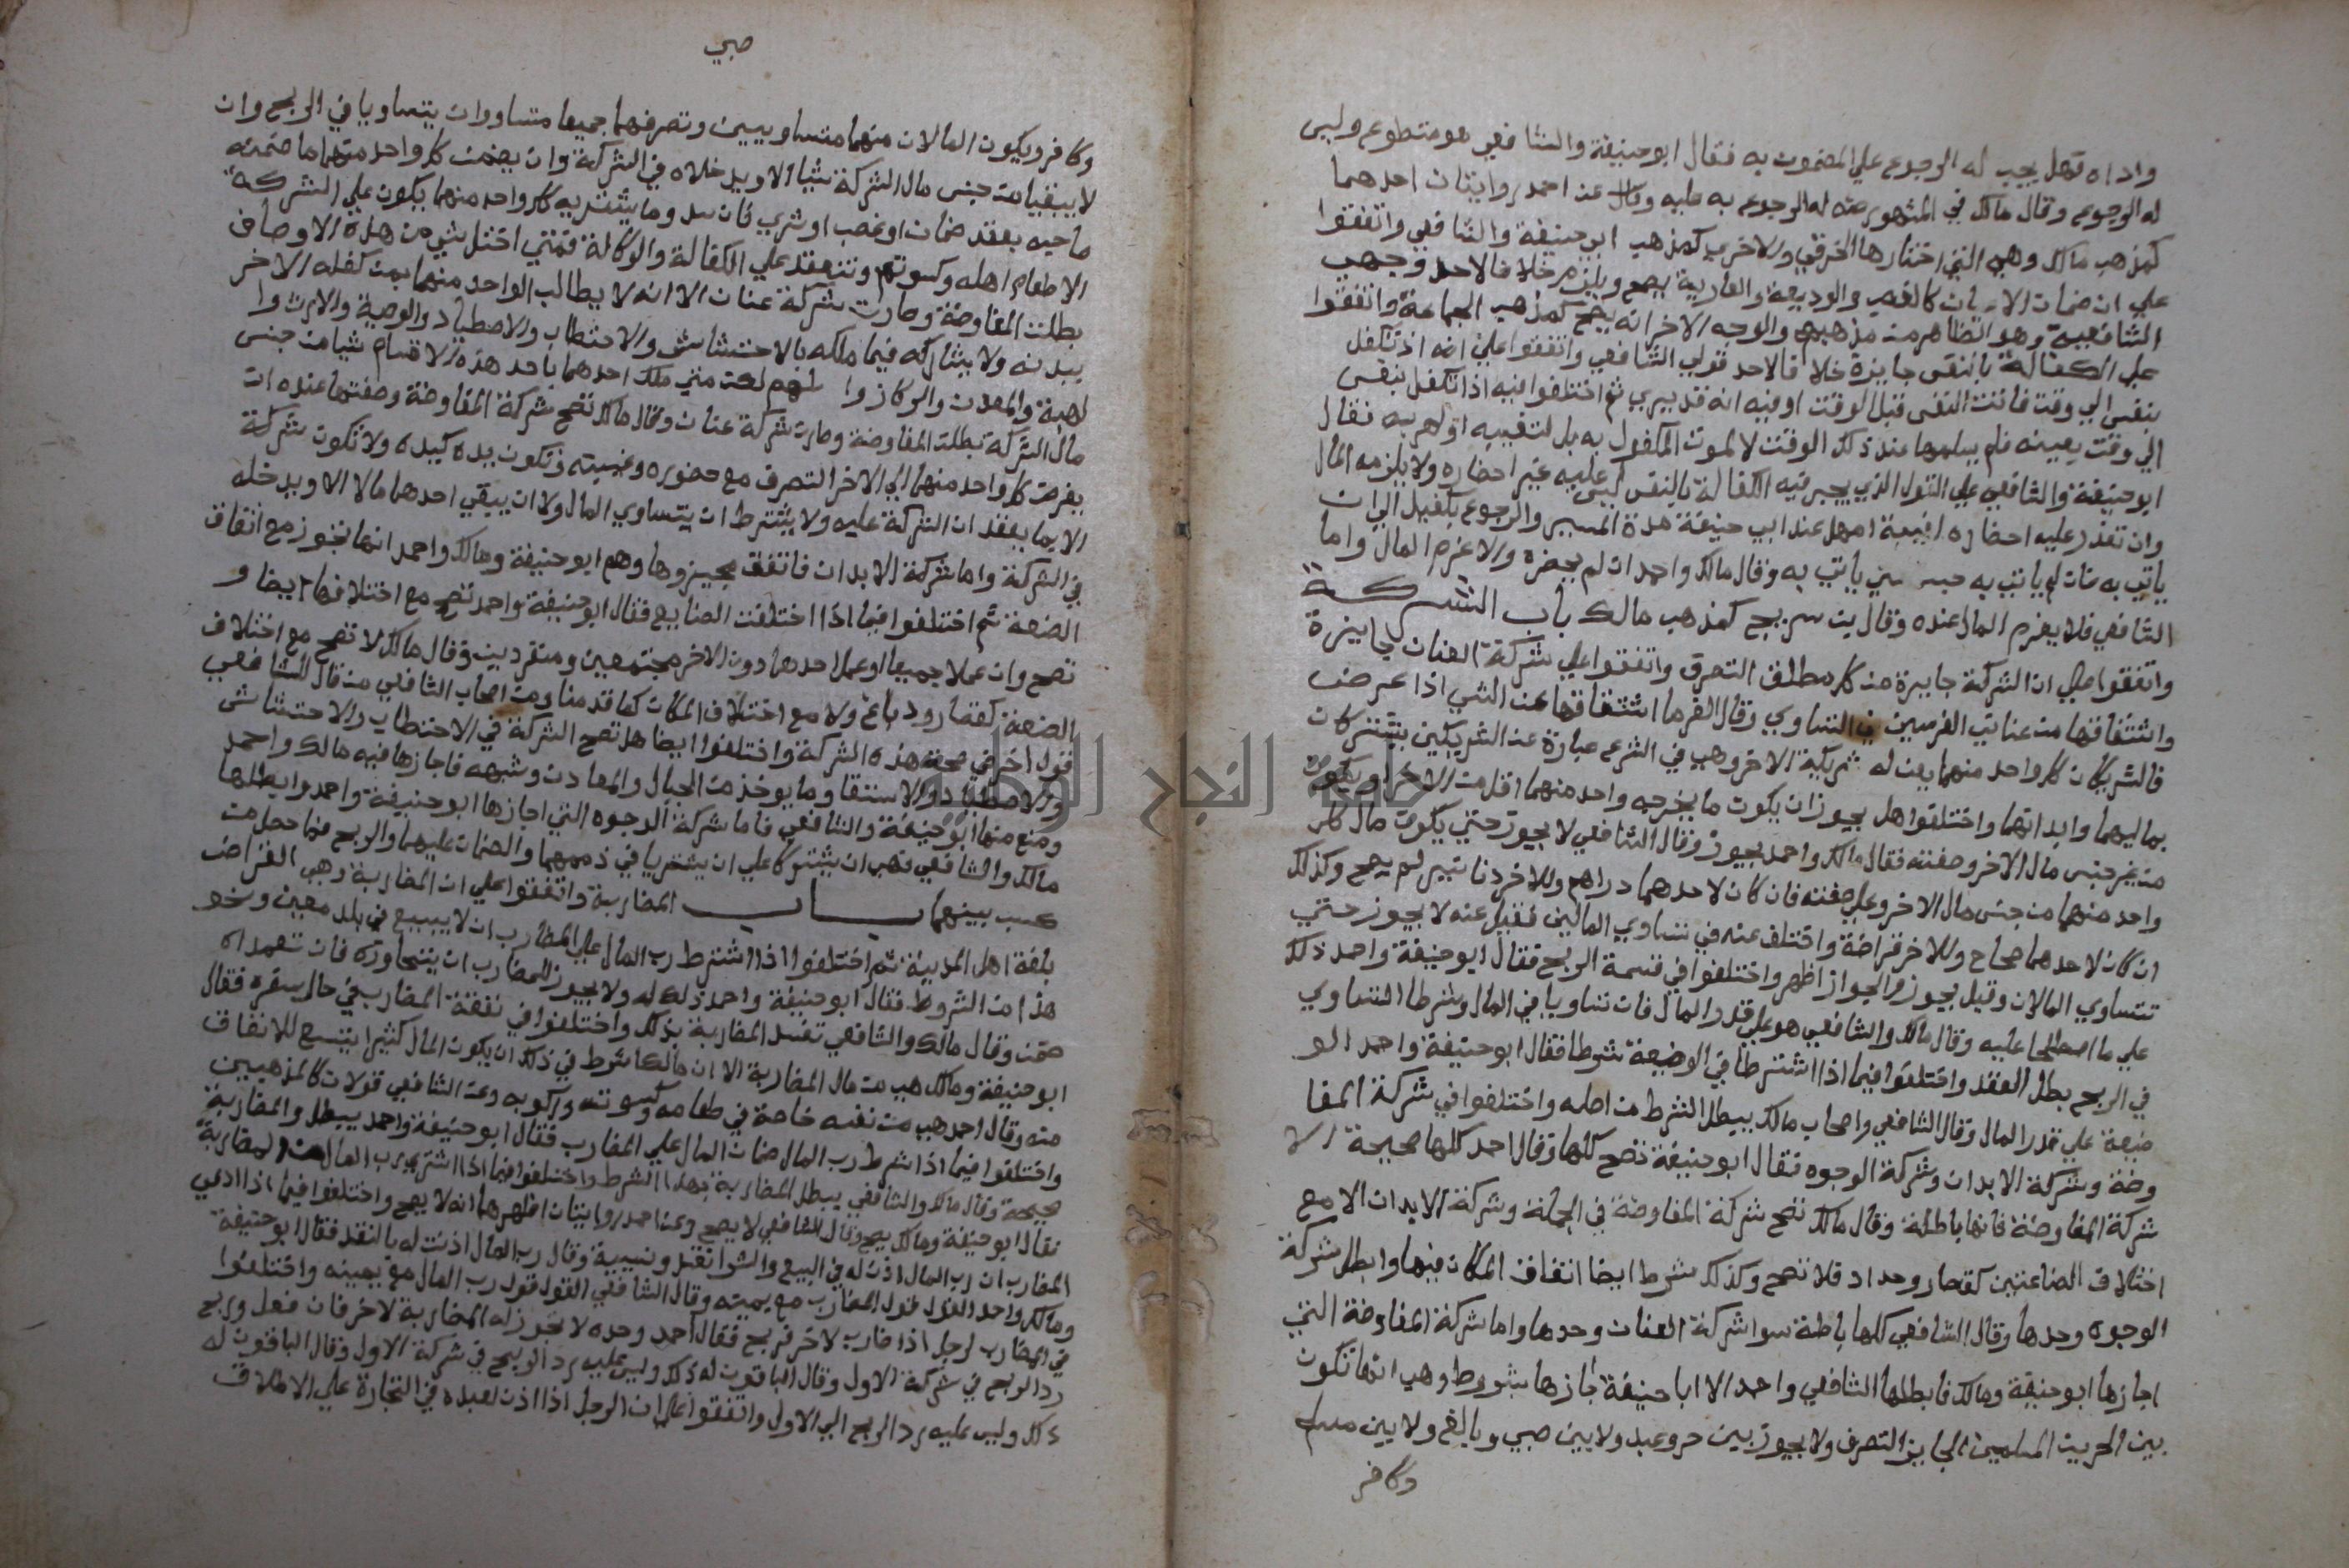 واداه فهل يجب له الرجوع علي المضمون به فقال ابو حنيفة والشافعي هو متطوع وليس
له الرجوع وقال مالك في المشهور عنه له الرجوع به عليه وقال عن احمد روايتان احدهما
كمذهب مالك وهي التي اختارها الخرقي والاخري كمذهب ابو حنيفة والشافعي واتفقوا
علي ان ضمان الاعيان كالغصب والوديعة والعارية يصح ويلزم خلافا لاحد وجهي
الشافعية وهو الظاهر من مذهبهم والوجه الاخر انه يصح كمذهب الجماعة واتفقوا
علي الكفالة بالنفس جايزة خلافا لاحد قولي الشافعي واتفقوا علي انه اذ تكفل
بنفس الي وقت فاتت النفس قبل الوقت او فيه انه قد بري ثم اختلفوا فيه اذا تكفل بنفس
الي وقت بعينه فلم يسلمها عند ذلك الوقت لا لموت المكفول به بل لتغيبه او لهربه فقال
ابو حنيفة والشافعي علي القول الذي يجبر فيه الكفالة بالنفس ليس عليه غير احضاره ولا يلزمه المال
وان تعذر عليه احضاره لغيبة امهل عند ابي حنيفة مدة المسير والرجوع بكفيل الي ان
ياتي به فان لم ياتي به حبس حتي ياتي به وقال مالك واحمد ان لم يحضره والا غرم المال واما
الشافعي فلا يغرم المال عنده وقال بن سريج كمذهب مالك باب الشركة
واتفقوا علي ان الشركة جايزة من كل مطلق التصرف واتفقوا علي شركة العنان جايزة
واشتقاقها من عناني الفرسين في التساوي وقال الفرما اشتقاقها عن الشي اذا عرض
فالشريكان كل واحد منهما يعن له شريكه الاخر وهي في الشرع عبارة عن الشريكين يشتركان
بماليهما وابدانهما واختلفوا هل يجوز ان يكون ما يخرجه واحد منهما اقل من الاخر او يكون
من غير جنس مال الاخر وصفته فقال مالك واحمد يجوز وقال الشافعي لا يجوز حتي يكون مال كل
واحد منهما من جنس مال الاخر وعلي صفته فان كان لاحدهما دراهم وللاخر دنانير لم يصح وكذلك
ان كان لاحدهما صحاح وللاخر قراضة واختلف عنه في تساوي المالين فقيل عنه لا يجوز حتي
تتساوي المالان وقيل يجوز والجواز اظهر واختلفوا في قسمة الربح فقال ابو حنيفة واحمد ذلك
علي ما اصطلحا عليه وقال مالك والشافعي هو علي قدر المال فان تساويا في المال وشرطا التساوي
في الربح بطل العقد واختلفوا فيما اذا اشترطا في الوضيعة شرطا فقال ابو حنيفة واحمد الو
ضيعة علي قدر المال وقال الشافعي واصحاب مالك يبطل الشرط من اصله واختلفوا في شركة المفا
وضة وشركة الابدان وشركة الوجوه فقال ابو حنيفة تصح كلها وقال احمد كلها صحيحة الا
شركة المفاوضة فانها باطلة وقال مالك تصح شركة المفاوضة في الجملة وشركة الابدان الا مع
اختلاف الصناعتين كقصار وحداد فلا تصح وكذلك شرط ايضا اتفاق المكان فيها وابطل شركة
الوجوه وحدها وقال الشافعي كلها باطلة سوا شركة العنان وحدها واما شركة المفاوضة التي
اجازها ابو حنيفة ومالك فابطلها الشافعي واحمد الا ابا حنيفة اجازها بشروط وهي انها تكون
بين الحرين المسلمين الجايز التصرف ولا يجوز بين حر وعبد ولا بين صبي وبالغ ولا بين مسلم
وكافر
صبي
وكافر ويكون المالان منهما متساويين وتصرفهما جميعا متساو وان يتساويا في الربح وان
لا يبقيا من جنس مال الشركة شيا الا ويدخلاه في الشركة وان يضمن كل واحد منهما ما ضمنه
صاحبه بعقد ضمان او غصب او شري فاسد وما يشتريه كل واحد منهما يكون علي الشركة
الا طعام اهله وكسوتهم وتنعقد علي الكفالة والوكالة فمتي اختل شي من هذه الاوصاف
بطلت المفاوضة وصارت شركة عنان الا انه لا يطالب الواحد منهما بمن كفله الاخر
ببدنه ولا يشاركه فيما ملكه بالاحتشاش والاحتطاب والاصطياد والوصية والارث وا
لهبة والمعدن والركاز وا لهم لعت متي ملك احدهما باحد هذه الاقسام شيا من جنس
مال الشركة بطلت المفاوضة وصارت شركة عنان وقال مالك تصح شركة المفاوضة وصفتها عنده ان
يفوض كل واحد منهما الي الاخر التصرف مع حضوره وغيبته وتكون يده كيده ولا تكون شركة
الا بما يعقد ان الشركة عليه ولا يشترط ان يتساوي المال ولا ان يبقي احدهما مالا الا ويدخله
في الشركة واما شركة الابدان فاتفق مجيزوها وهم ابو حنيفة ومالك واحمد انها تجوز مع اتفاق
الصنعة ثم اختلفوا فيما اذا اختلفت الصنايع فقال ابو حنيفة واحمد تصح مع اختلافها ايضا و
تصح وان عملا جميعا او عمل احدهما دون الاخر مجتمعين ومنفردين وقال مالك لا تصح مع اختلاف
الصنعة كقصار ودباغ ولا مع اختلاف المكان كما قدمنا ومن اصحاب الشافعي من قال للشافعي
قول اخر في صحة هذه الشركة واختلفوا ايضا هل تصح الشركة في الاحتطاب والاحتشاش
والاصطياد والاستقا وما يوخذ من الجبال والمعادن وشبهه فاجازها فيه مالك واحمد
ومنع منها ابو حنيفة والشافعي فاما شركة الوجوه التي اجازها ابو حنيفة واحمد وابطلها
مالك والشافعي فهي ان يشتركا علي ان يشتريا في ذممهما والضمان عليهما والربح فما حصل من
كسب بينهما باب المضاربة واتفقوا علي ان المضاربة وهي القراض
بلغة اهل المدينة ثم اختلفوا اذا اشترط رب المال علي المضارب ان لا يبيع في بلد معين ونحو
هذا من الشروط فقال ابو حنيفة واحمد ذلك له ولا يجوز للمضارب ان يتجاوزه فان تعمداه
ضمن وقال مالك والشافعي تفسد المضاربة بذلك واختلفوا في نفقة المضارب في حال سفره فقال
ابو حنيفة ومالك هي من مال المضاربة الا ان مالكا شرط في ذلك ان يكون المال كثيرا يتسع للانفاق
منه وقال احمد هي من نفسه خاصة في طعامه وكسوته وركوبه وعن الشافعي قولان كالمذهبين
واختلفوا فيما اذا شرط رب المال ضمان المال علي المضارب فقال ابو حنيفة واحمد يبطل والمضاربة
صحيحة وقال مالك والشافعي يبطل المضاربة بهذا الشرط واختلفوا فيما اذا اشتري رب المال من المضاربة
فقال ابو حنيفة ومالك يصح وقال الشافعي لا يصح وعن احمد روايتان اظهرهما انه لا يصح واختلفوا فيما اذا ادعي
المضارب ان رب المال اذن له في البيع والشرا نقدا ونسية وقال رب المال اذنت له بالنقد فقال ابو حنيفة
ومالك واحمد القول قول المضارب مع يمينه وقال الشافعي القول قول رب المال مع يمينه واختلفوا
في المضارب لرجل اذا ضارب لاخر فربح فقال احمد وحده لا يجوز له المضاربة لاخر فان فعل وربح
رد الربح في شركة الاول وقال الباقون له ذلك وليس عليه رد الربح في شركة الاول وقال الباقون له
ذلك وليس عليه رد الربح الي الاول واتفقوا علي ان الرجل اذا اذن لعبده في التجارة علي الاطلاق
جامعة النجاح الوطنية